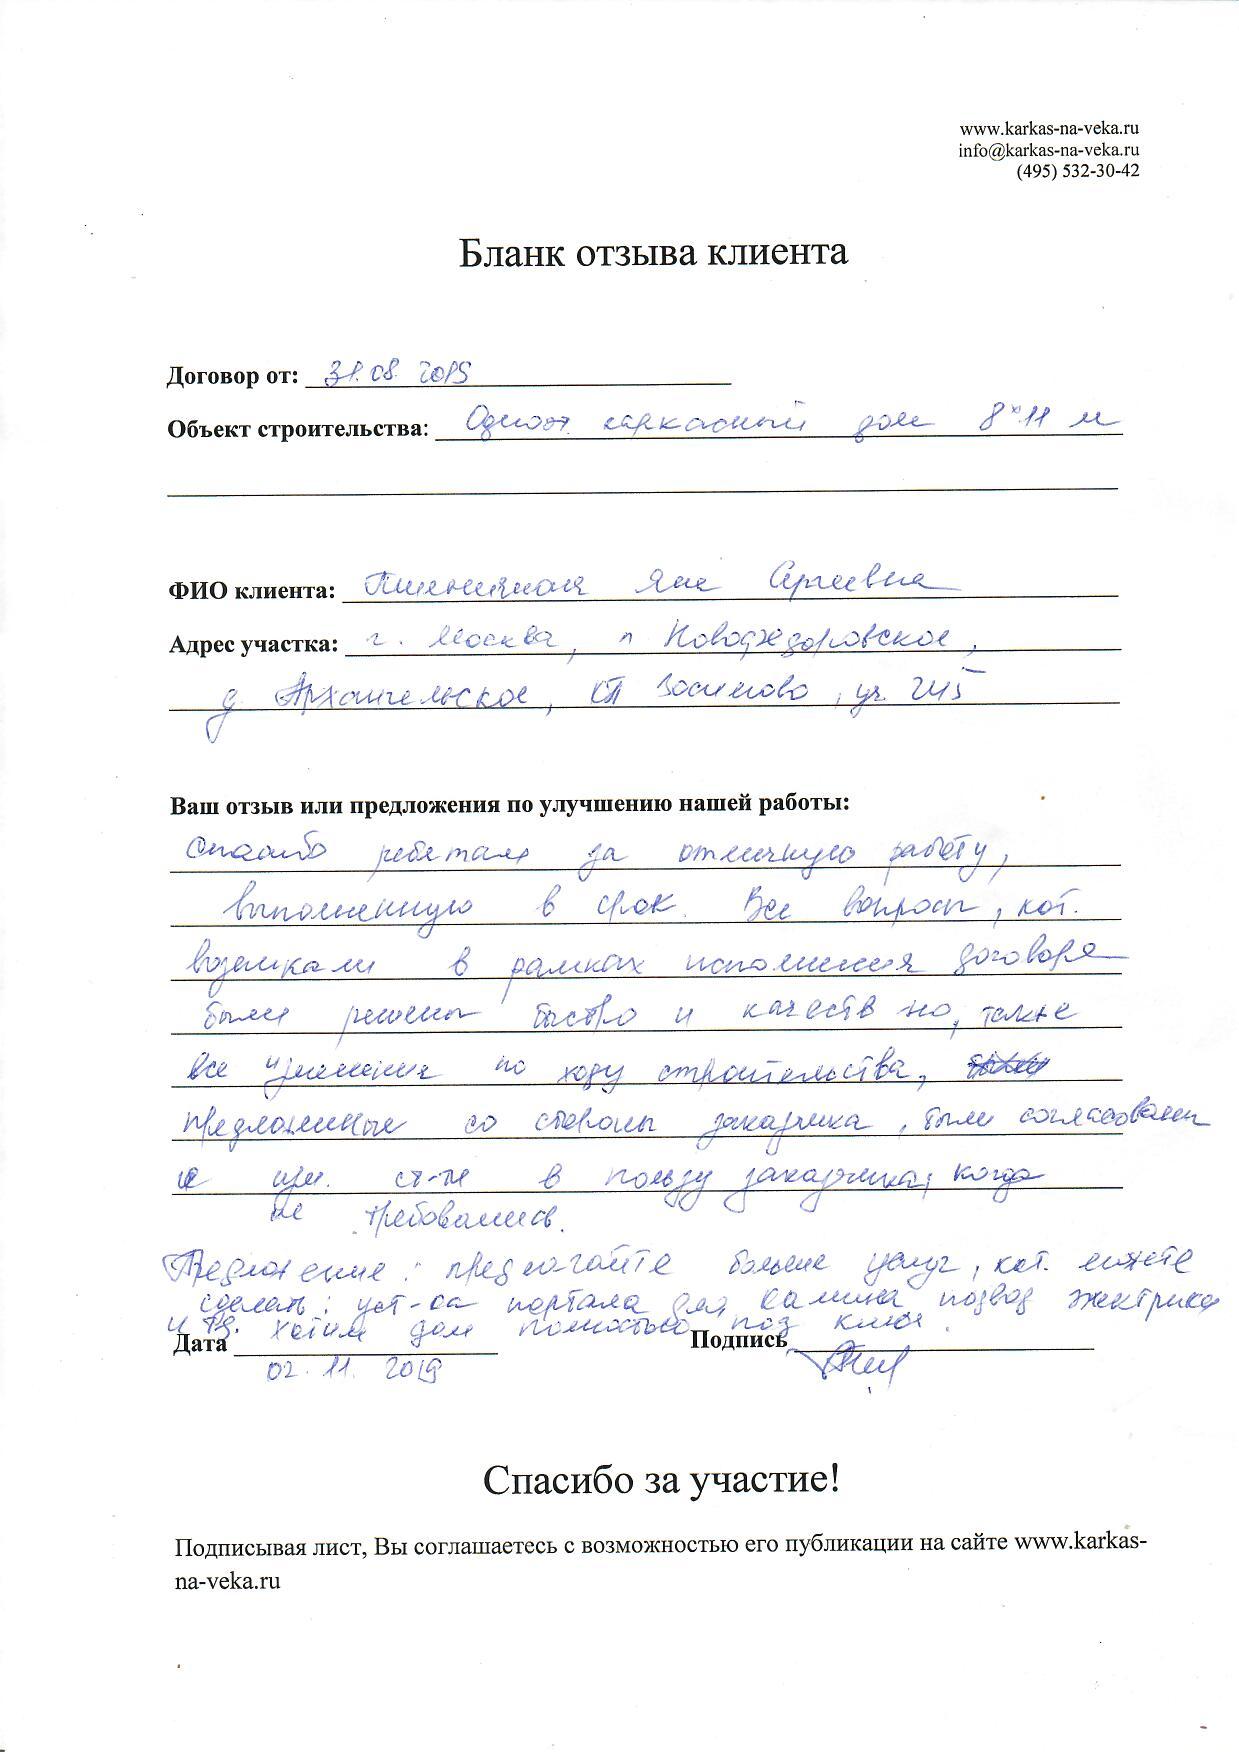 www.karkas-na-veka.ru
info@karkas-na-veka.ru
(495) 532-30-42
Бланк отзыва клиента
Договор от: 31.08.2015
Объект строительства: Одноэт. каркасный дом 8×11 м
ФИО клиента: Пшеничная Яна Сергеевна
Адрес участка: г. Москва, п Новофедоровское,
д Архангельское, КП Зосимово, уч 245
Ваш отзыв или предложения по улучшению нашей работы:
Спасибо ребятам за отличную работу,
выполненную в срок. Все вопросы, кот.
возникали в рамках исполнения договора
были решены быстро и качеств но, также
все изменения по ходу строительства,
предложенные со стороны заказчика, были согласованы
и ст-ти в пользу заказчика, когда
не требовались.
Предложение: предлагайте больше услуг, кот. можете
сделать: уст-ка портала для камина подвод электрики
и тд. Хотим дом полностью под ключ.
Дата Подпись
02.11.2019
Спасибо за участие!
Подписывая лист, Вы соглашаетесь с возможностью его публикации на сайте www.karkas-
na-veka.ru